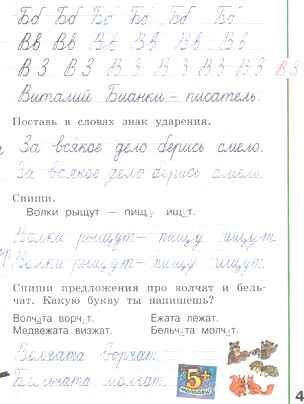 Бб Бб Бб Бб Бб Бб
Вв Вв Вв Вв Вв Вв
В З В З В З В З В З В З В З
Виталий Бианки – писатель.
Поставь в словах знак ударения.
За всякое дело берись смело.
За всякое дело берись смело.
Спиши.
Волки рыщут – пищу ищут.
Волки рыщут – пищу ищут
Волки рыщут – пищу ищут.
Спиши предложения про волчат и бель-
чат. Какую букву ты напишешь?
Волчата ворчат. Ежата лежат.
Медвежата визжат. Бельчата молчат.
Волчата ворчат.
Бельчата молчат.
5+
4